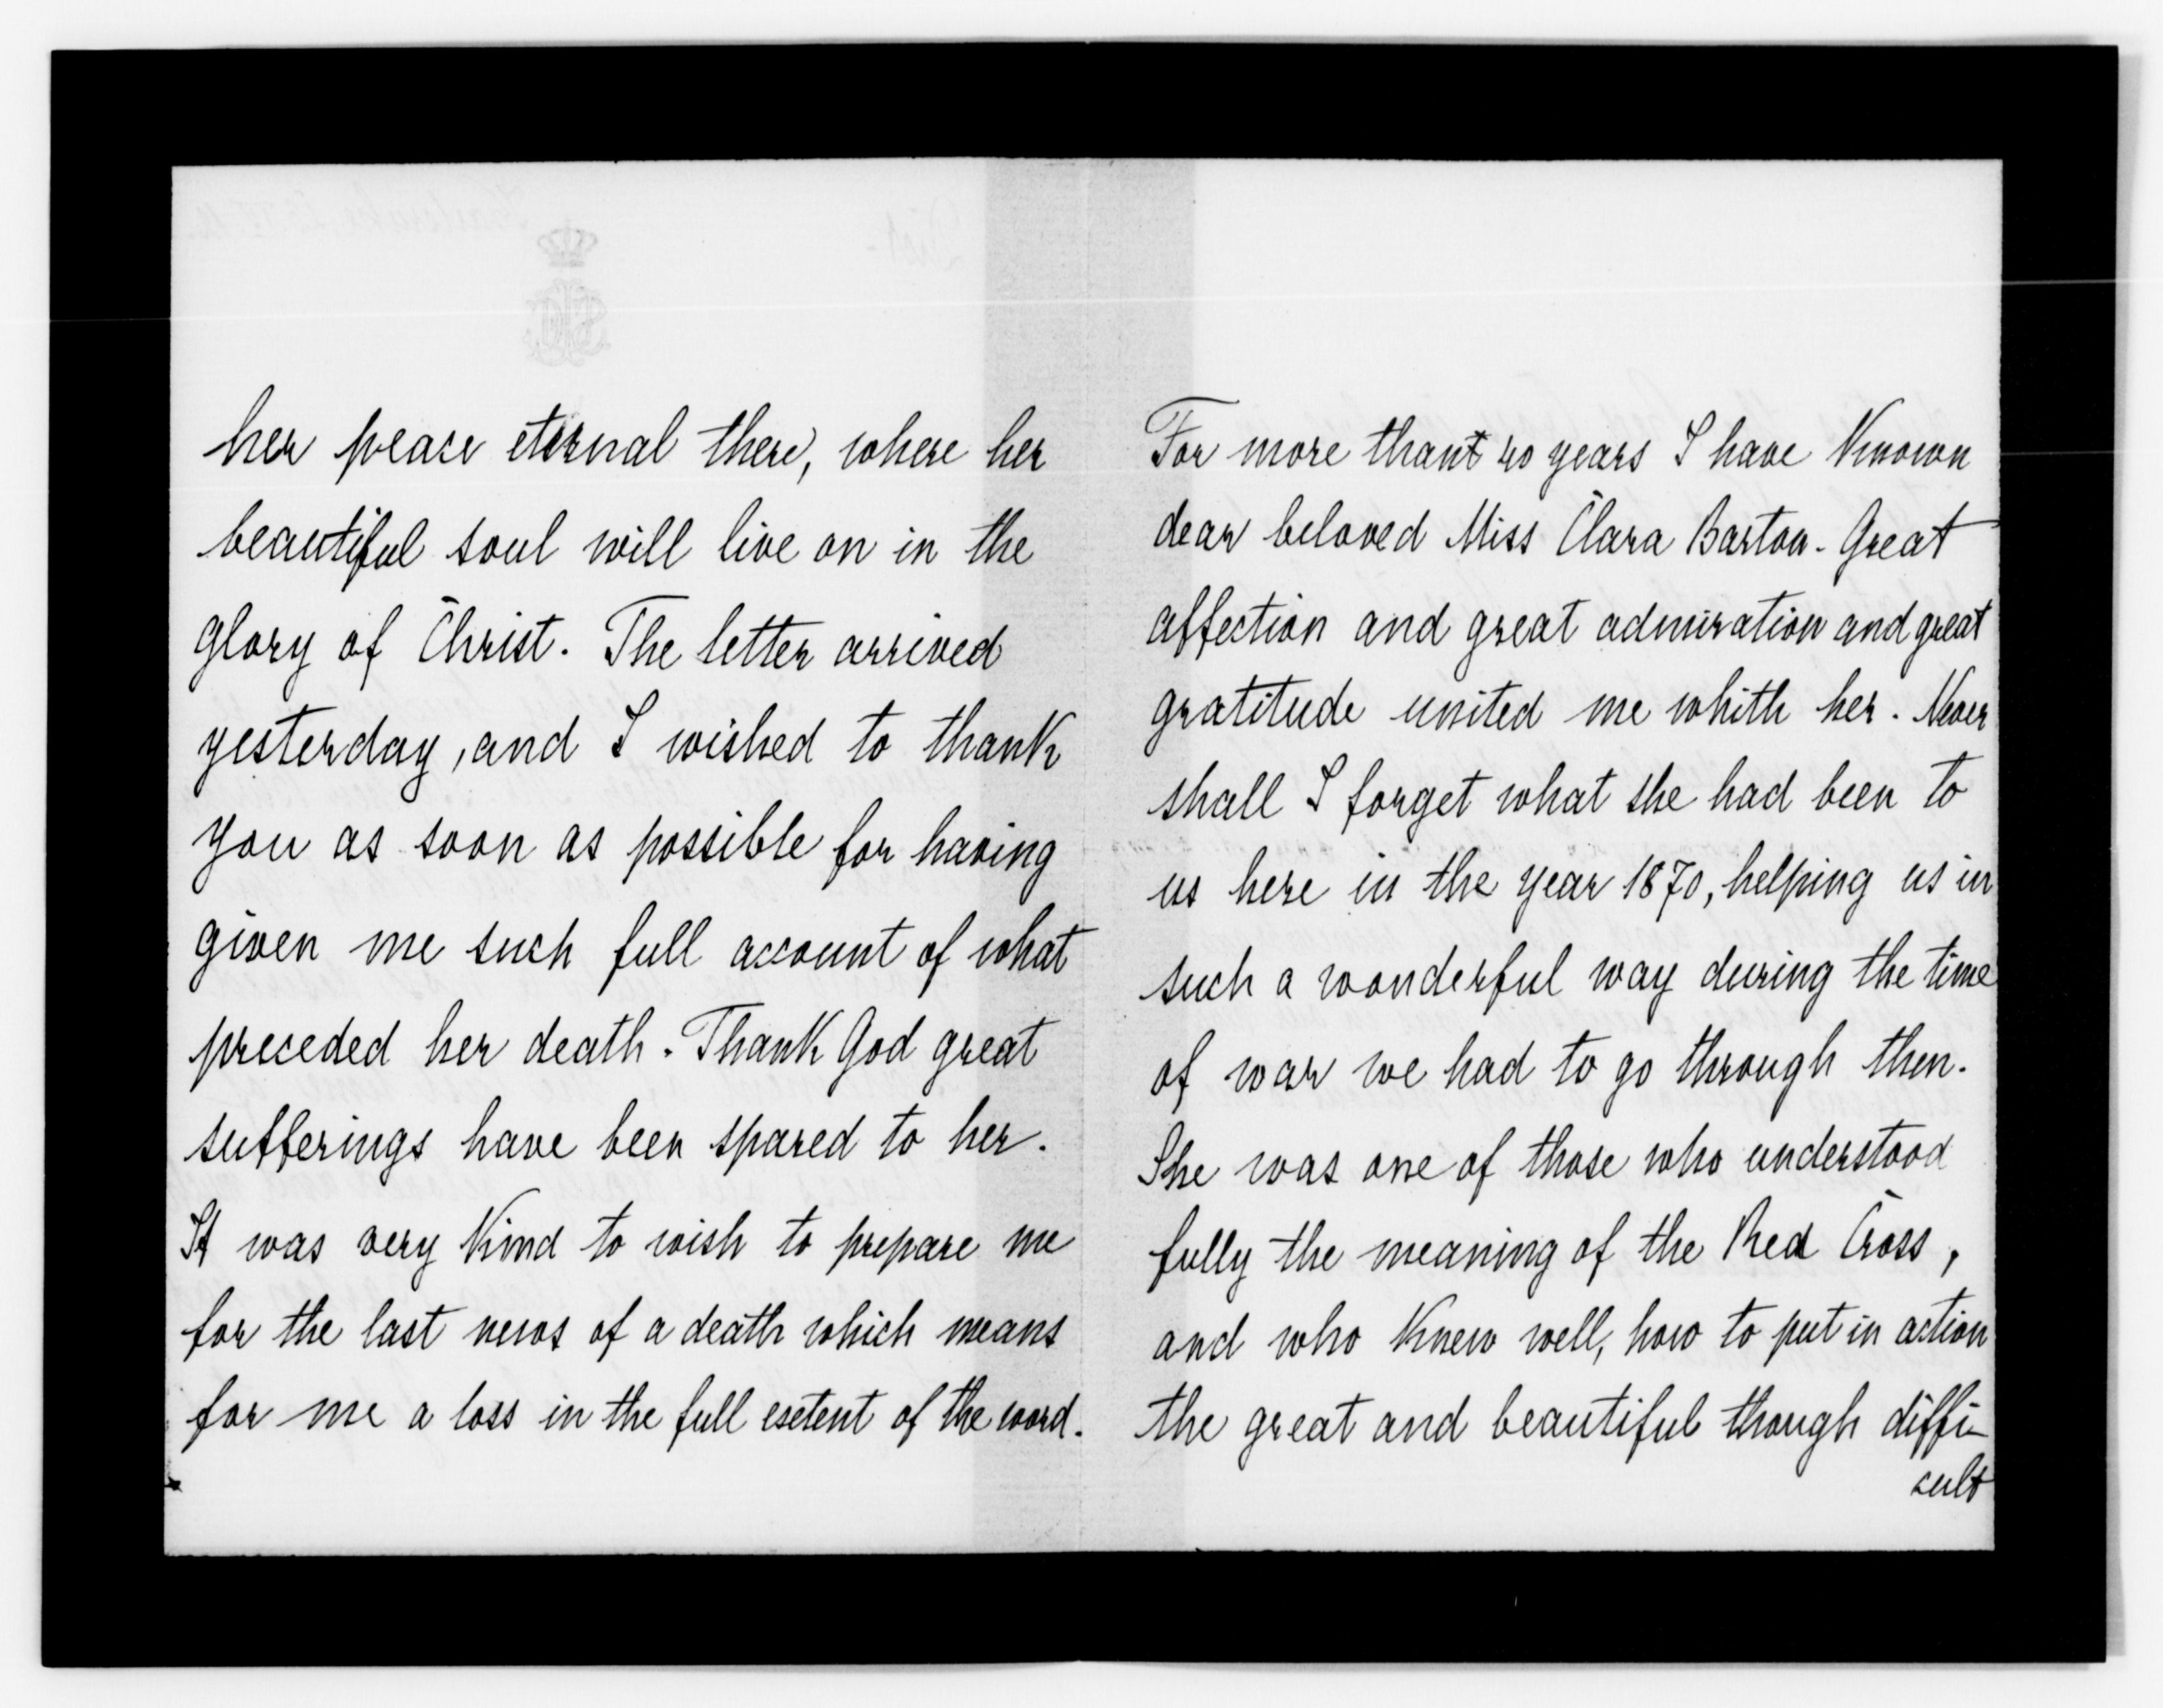 her peace eternal there, where her
beautiful soul will live on in the
glory of Christ. The letter arrived
yesterday, and I wished to thank
you as soon as possible for having
given me such full account of what
preceded her death. Thank God great
sufferings have been spared to her.
It was very kind to wish to prepare me
for the last news of a death which means
for me a loss in the full esetent of the word.
For more than 40 years I have Known
dear beloved Miss Clara Barton. Great
affection and great admiration and great
gratitude united me whith her. Never
shall I forget what she had been to
us here in the year 1870, helping us in
such a wonderful way during the time
of war we had to go through then.
She was one of those who understood
fully the meaning of the Red Cross,
and who Knew well, how to put in action
the great and beautiful though diffi-
cult